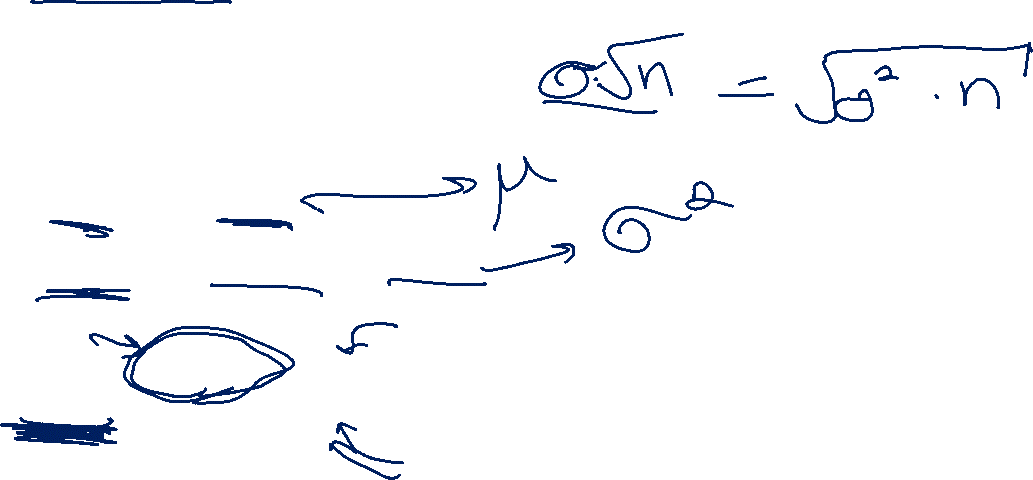 σ·√n = √σ² · n
μ
σ²